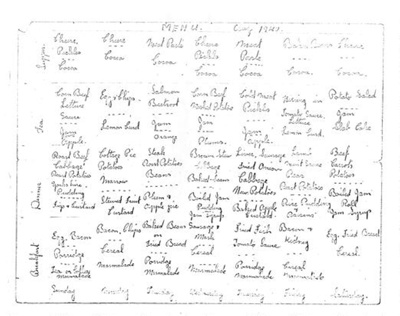 MENU. Aug 1940.
Supper
Cheese Cheese Meat Paste Cheese Meat Cheese
Pickles Pickles Paste
Cocoa Cocoa Cocoa Cocoa Cocoa Cocoa Cocoa
Tea
Corn Beef Egg & Chips Salmon Corn Beef Cold Meat Herring in Potato Salad
Lettuce Beetroot Pickles Tomato Sauce Jam
Sauce Lemon Curd Jam Jam Jam Lettuce Slab Cake
Jam Orange Plums Apple Lemon Curd
Apple
Dinner
Roast Beef Cottage Pie Steak Beef
Cabbage Potatoes Roast Potatoes Fried Onion Carrots
Roast Potatoes Marrow Beans Cabbage Peas Potatoes
Yorkshire Baked Beans New Potatoes Roast Potatoes
Pudding Stewed Fruit Plum & Boiled Jam Baked Apple Rice Pudding Boiled Jam
Custard Apple pie Pudding Custard Raisins Roll
Jam Syrup Jam Syrup
Breakfast
Egg, Bacon Bacon, Chips Baked Beans Sausage & Fried Fish Bacon & Egg, Fried Bread
on Mash Kidney
Porridge Cereal Fried Bread Cereal Tomato Sauce Cereal
Marmalade Porridge Porridge Cereal
Marmalade Marmalade Marmalade Marmalade Marmalade
Sunday Monday Tuesday Wednesday Thursday Friday Saturday.